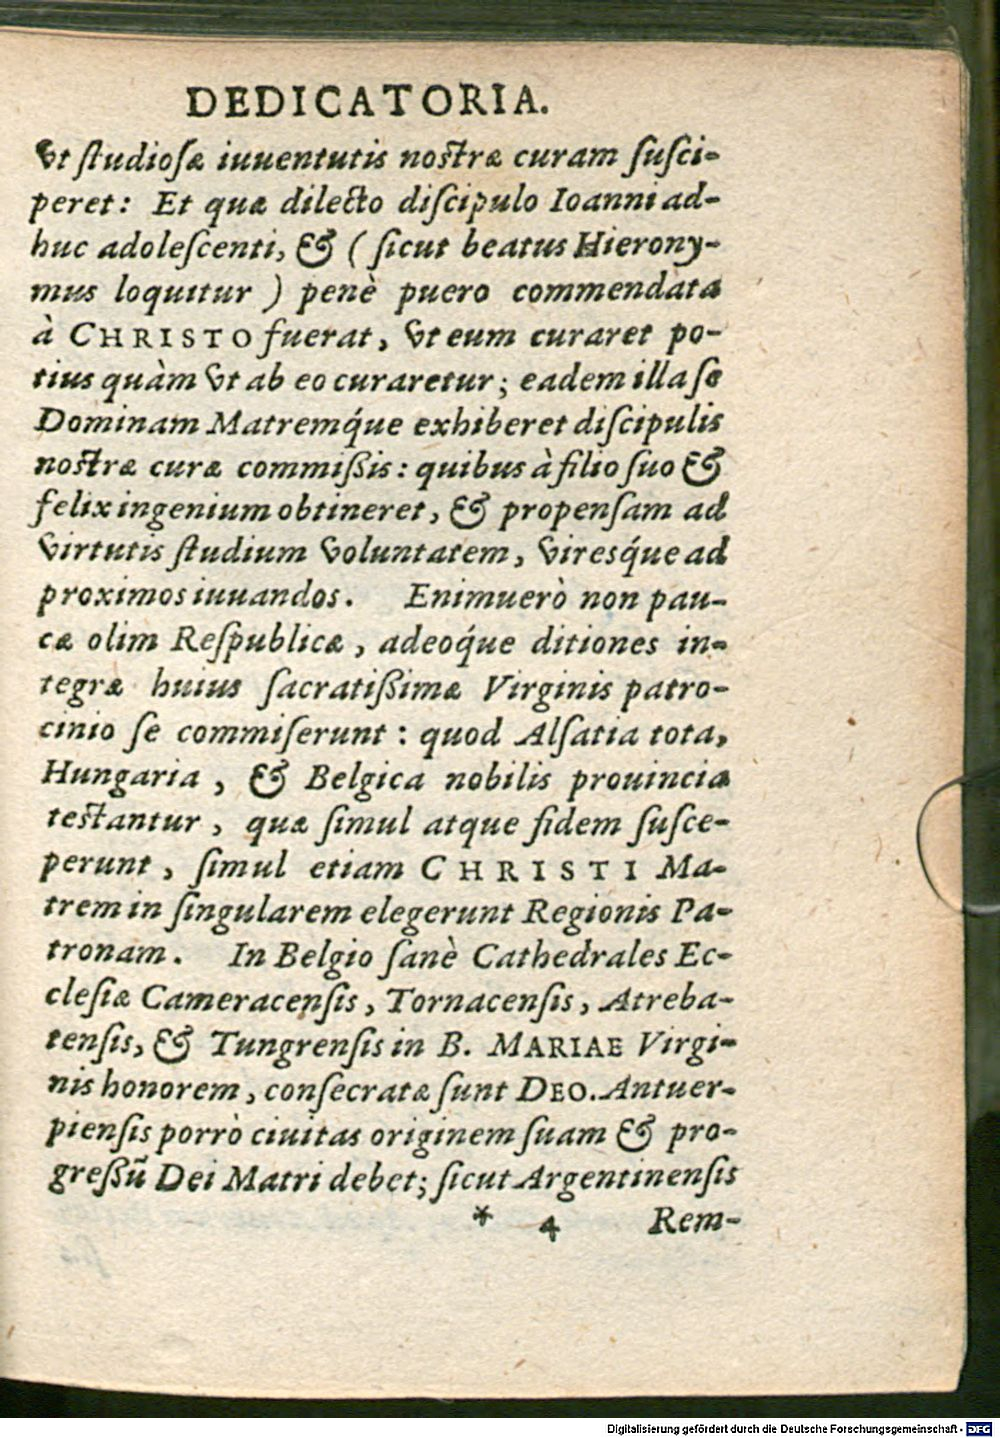 DEDICATORIA.
vt ſtudioſæ iuuentutis noſtræ curam ſuſci-
peret: Et quæ dilecto diſcipulo Ioanni ad-
huc adoleſcenti, & (ſicut beatus Hierony-
mus loquitur) penè puero commendata
à CHRISTO fuerat, vt eum curaret po-
tius quàm vt ab eo curaretur; eadem illa ſe
Dominam Matremq́ue exhiberet diſcipulis
noſtræ curæ commißis: quibus à filio ſuo &
felix ingenium obtineret, & propenſam ad
virtutis ſtudium voluntatem, viresq́ue ad
proximos iuuandos. Enimuerò non pau-
cæ olim Reſpublicæ, adeoq́ue ditiones in-
tegræ huius ſacratißimæ Virginis patro-
cinio ſe commiſerunt: quod Alſatia tota,
Hungaria, & Belgica nobilis prouincia
teſtantur, quæ ſimul atque fidem ſuſce-
perunt, ſimul etiam CHRISTI Ma-
trem in ſingularem elegerunt Regionis Pa-
tronam. In Belgio ſanè Cathedrales Ec-
cleſiæ Cameracenſis, Tornacenſis, Atreba-
tenſis, & Tungrenſis in B. MARIAE Virgi-
nis honorem, conſecratæ ſunt DEO. Antuer-
pienſis porrò ciuitas originem ſuam & pro-
greßũ Dei Matri debet; ſicut Argentinenſis
* 4 Rem-
Digitalisierung gefördert durch die Deutsche Forschungsgemeinschaft - DFG